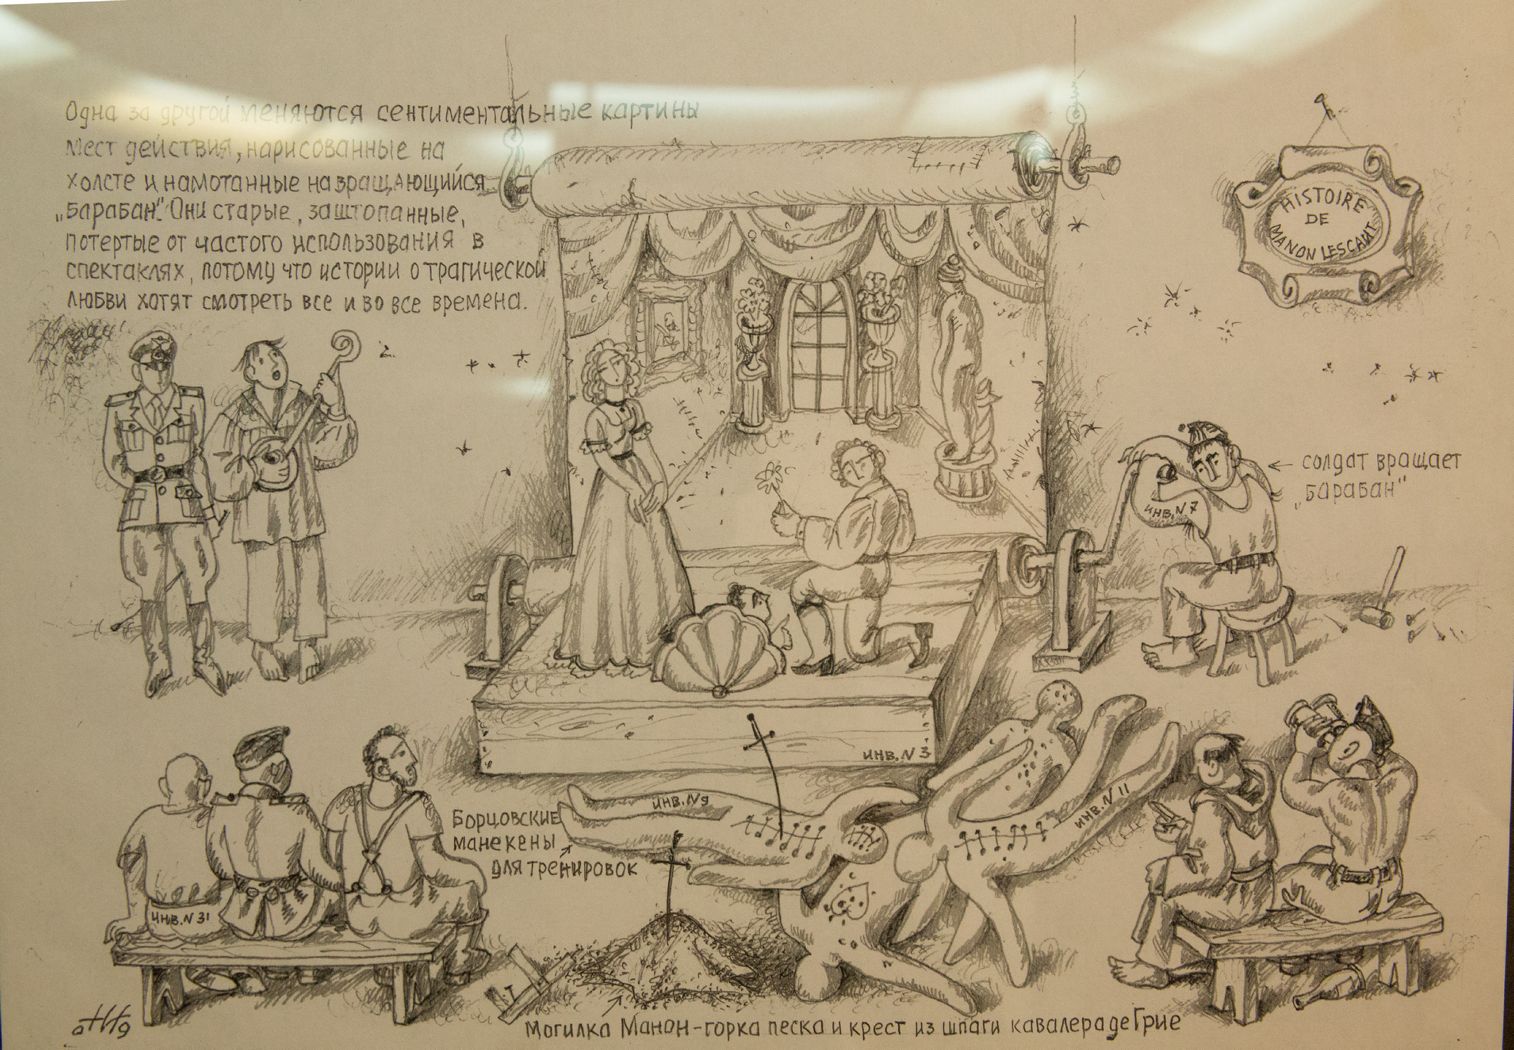 Одна за другой меняются сентиментальные картины
мест действия, нарисованные на
холсте и намотанные на вращающийся
„барабан". Они старые, заштопанные,
потертые от частого использования в
спектаклях, потому что истории о трагической
любви хотят смотреть все и во все времена.
HISTOIRE
DE
MANON LESCAUT
← солдат вращает
„барабан"
ИНВ. N 7
ИНВ. N 3
Борцовские
манекены
для тренировок
ИНВ. N 9
ИНВ. N 11
ИНВ. N 31
Могилка Манон - горка песка и крест из шпаги кавалера де Грие